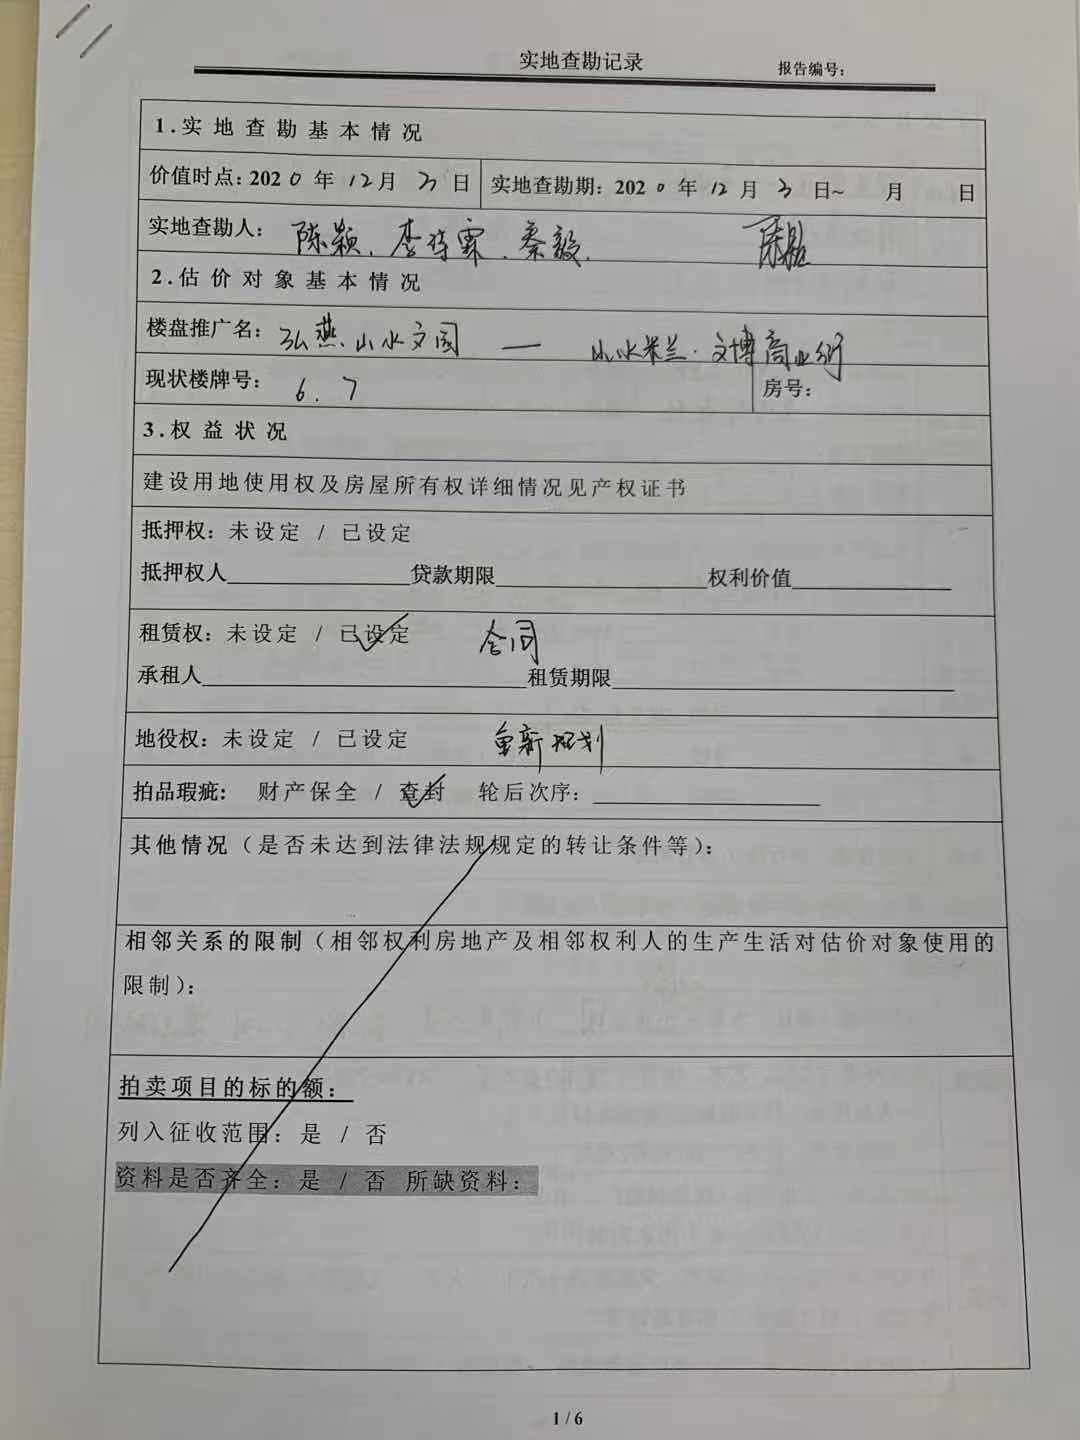 实地查勘记录
报告编号：
1.实地查勘基本情况
价值时点：2020年12月3日 实地查勘期：2020年12月3日~ 月 日
实地查勘人： 陈颖、李诗霖、秦毅
2.估价对象基本情况
楼盘推广名：弘燕山水文园 — 山水米兰·文博商业街
现状楼牌号： 6、7 房号：
3.权益状况
建设用地使用权及房屋所有权详细情况见产权证书
抵押权：未设定 / 已设定
抵押权人 贷款期限 权利价值
租赁权：未设定 / 已设定 合同
承租人 租赁期限
地役权：未设定 / 已设定 重新规划
拍品瑕疵： 财产保全 / 查封 轮后次序：
其他情况（是否未达到法律法规规定的转让条件等）：
相邻关系的限制（相邻权利房地产及相邻权利人的生产生活对估价对象使用的
限制）：
拍卖项目的标的额：
列入征收范围：是 / 否
资料是否齐全：是 / 否 所缺资料：
1 / 6